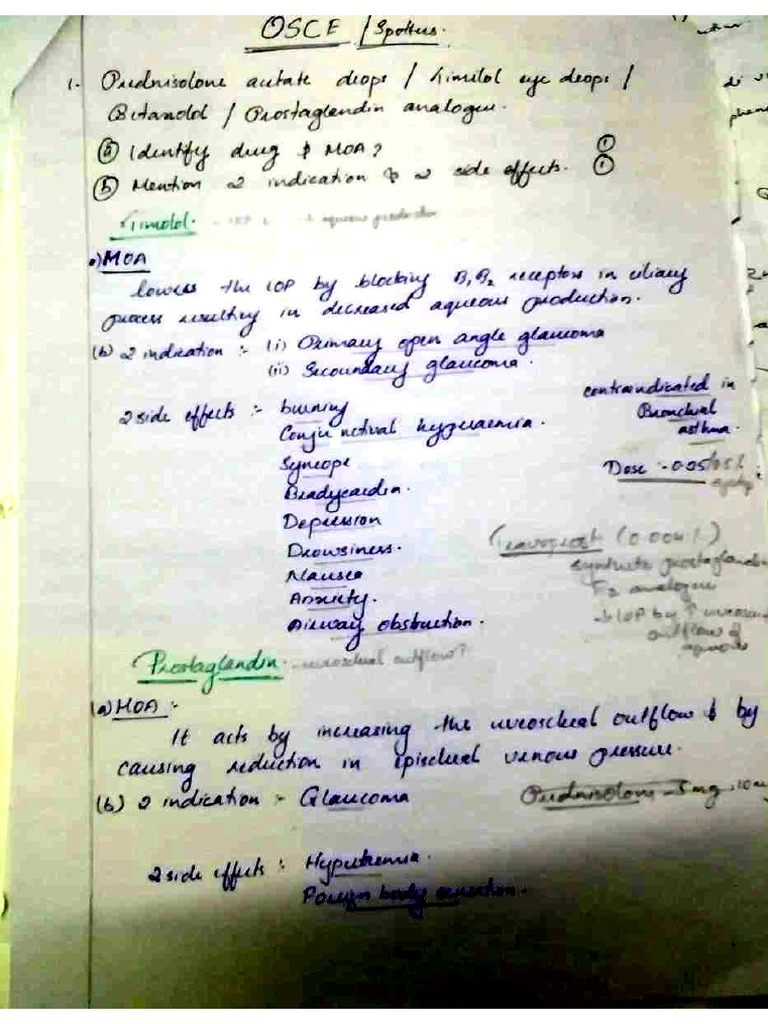 OSCE / Spotters.
1. Prednisolone acetate drops / Timilol eye drops /
Betaxolol / Prostaglandin analogue.
(a) Identify drug & MOA? (1)
(b) Mention 2 indication & 2 side effects. (1)
Timolol. aqueous production
a) MOA
lowers the IOP by blocking B1 B2 receptors in ciliary
process resulting in decreased aqueous production.
(b) 2 indication :- (i) Primary open angle glaucoma
(ii) Secoundary glaucoma.
2 side effects :- burning
Conjunctival hyperaemia.
Syncope
Bradycardia.
Depression
Drowsiness.
Nausea
Anxiety.
Airway obstruction.
contraindicated in
Bronchial
asthma.
Dose :-
Travoprost (0.004%)
synthetic prostaglandin
F2 analogue
IOP by ↑
outflow of
aqueous
Prostaglandin. - uveoscleral outflow↑
(a) MOA :-
It acts by increasing the uveoscleral outflow & by
causing reduction in episcleral venous pressure.
(b) 2 indication :- Glaucoma
Prednisolone - 5mg, 10mg
2 side effects :- Hyperemia.
Foreign body sensation.